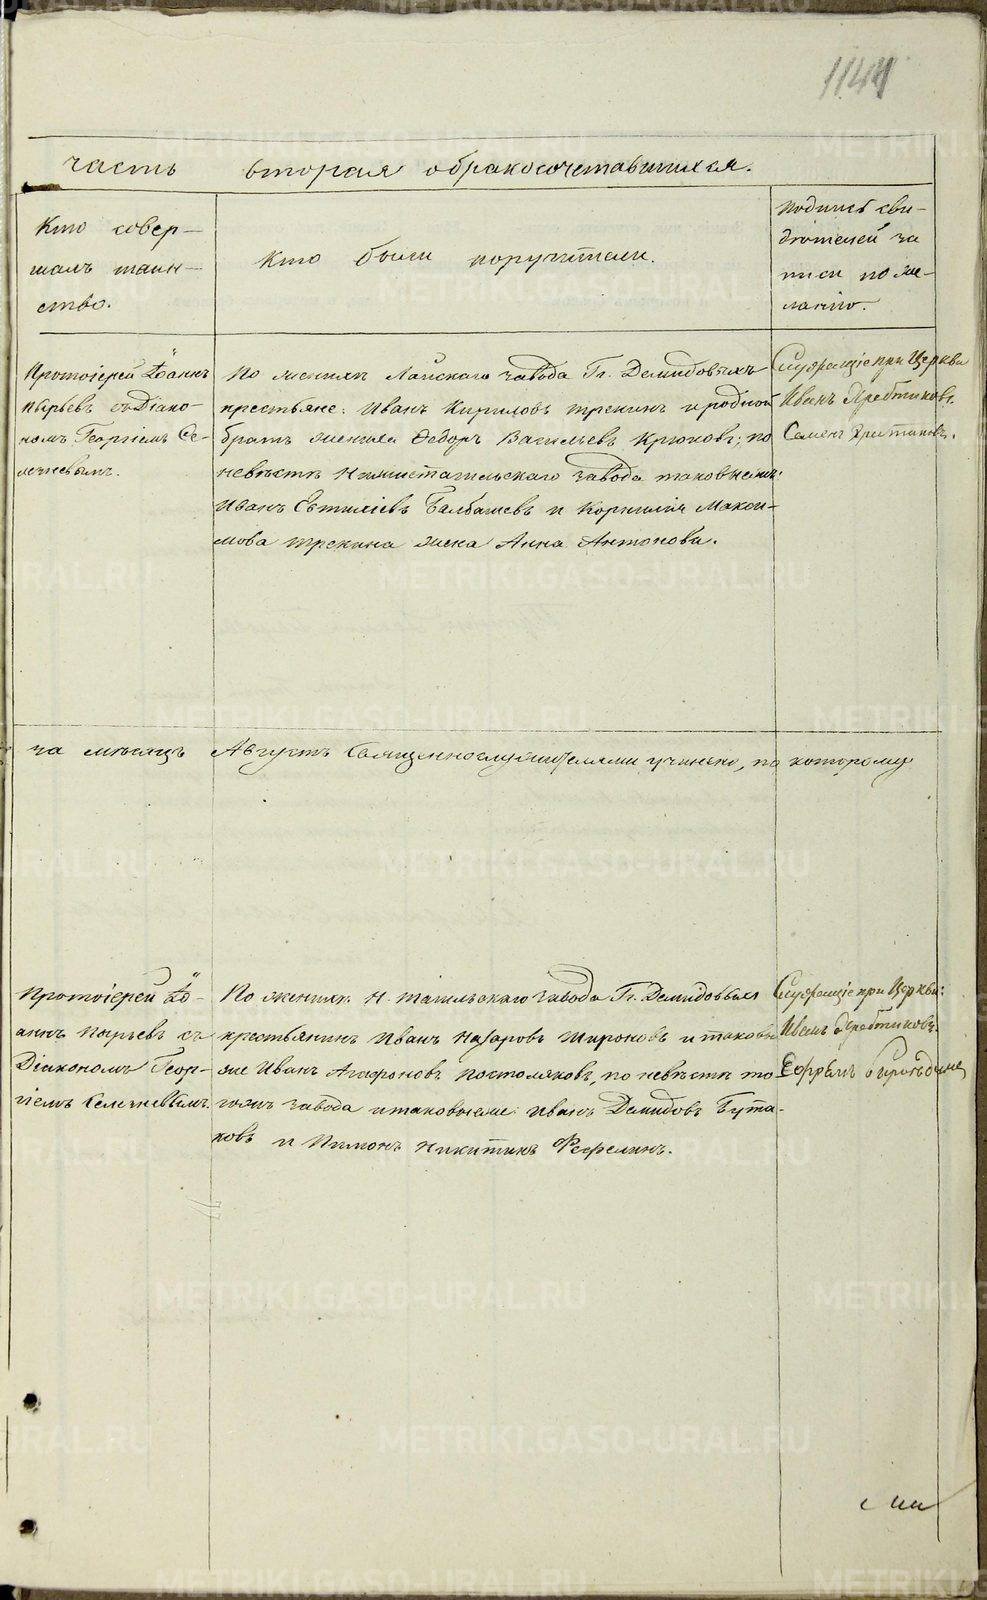 1144
часть вторая о бракосочетавшихся.
Кто совер-
шалъ таин-
ство.
Кто были поручители.
Подпись сви-
дѣтелей за
писи по же-
ланію.
Протоіерей Іоаннъ
Пырьевъ съ Діако-
номъ Георгіемъ Се-
лечневымъ.
По женихѣ Лайскаго завода Гг. Демидовыхъ
крестьяне: Иванъ Кириловъ Трекинъ и родной
братъ жениха Федоръ Васильевъ Крюковъ; по
невѣстѣ Нижнетагильскаго завода таковыежъ:
Иванъ Евтихіевъ Балбашевъ и Корнилія Макси-
мова Трекина жена Анна Антонова.
Служащіе при Церкви
Иванъ
Семенъ
за мѣсяцъ Августъ Священнослужителями учинено, по которому
Протоіерей Іо-
аннъ Пырьевъ съ
Діакономъ Геор-
гіемъ Селечневымъ.
По женихѣ Н. Тагильскаго завода Гг. Демидовыхъ
крестьянинъ Иванъ Назаровъ Мироновъ и таковой
же Иванъ Агафоновъ Постоляковъ, по невѣстѣ то
гожъ завода и таковыеже: Иванъ Демидовъ Бута-
ковъ и Пимонъ Никитинъ Фефелинъ.
Служащіе при Церкви:
Иванъ
METRIKI.GASO-URAL.RU